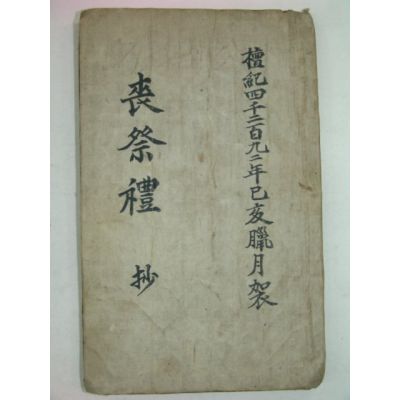 檀紀四千二百九二年己亥臘月袈
喪祭禮 抄